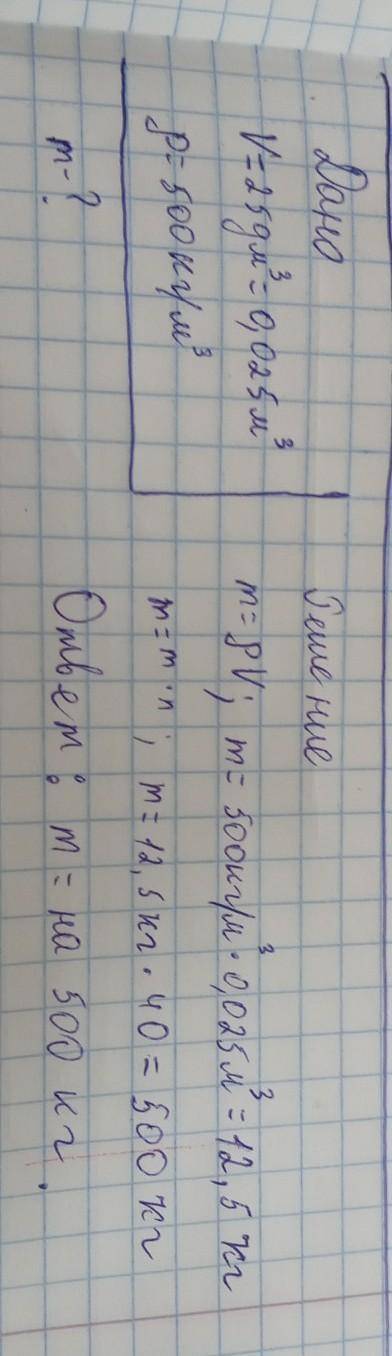 Дано
V = 25 дм³ = 0,025 м³
ρ = 500 кг/м³
m - ?
Решение
m = ρV; m = 500 кг/м³ · 0,025 м³ = 12,5 кг
m = m · n; m = 12,5 кг · 40 = 500 кг
Ответ: m = на 500 кг.